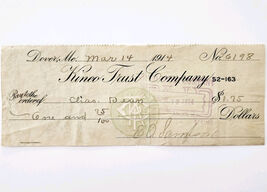 Dover, Mo. Mar 14 1914 No. 4198
Kinco Trust Company 52-163
Pay to the order of Chas. Dean $1.75
One and 75/100 Dollars